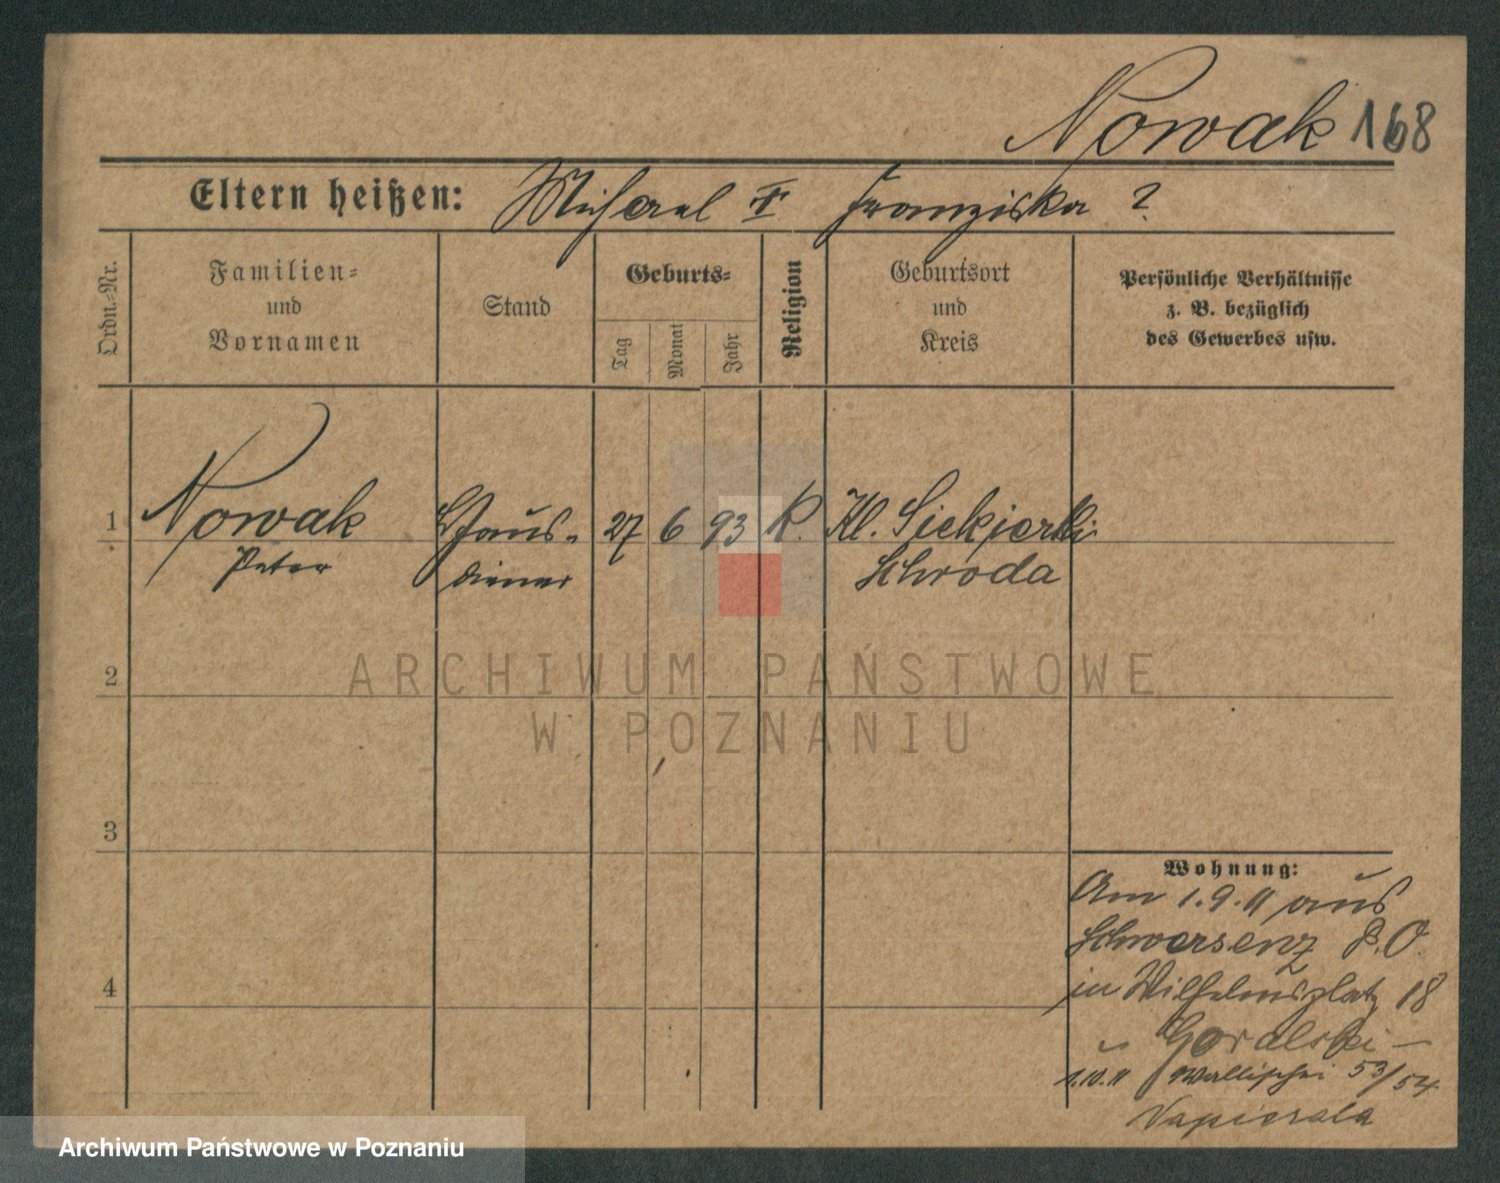 Nowak 168
Eltern heißen: Michael Franziska ?
Ordn.-Nr.
Familien=
und
Vornamen
Stand
Geburts=
Tag
Monat
Jahr
Religion
Geburtsort
und
Kreis
Persönliche Verhältnisse
z. B. bezüglich
des Gewerbes usw.
1 Nowak Haus- 27 6 93 K. Kl. Siekierki
Peter diener Schroda
2
3
4
Wohnung:
Am 1.9.11 aus
Schwersenz P.O.
in Wilhelmsplatz 18
Goralski –
1.10.11 Wallischei 53/54
Napierala
ARCHIWUM PAŃSTWOWE
W POZNANIU
Archiwum Państwowe w Poznaniu